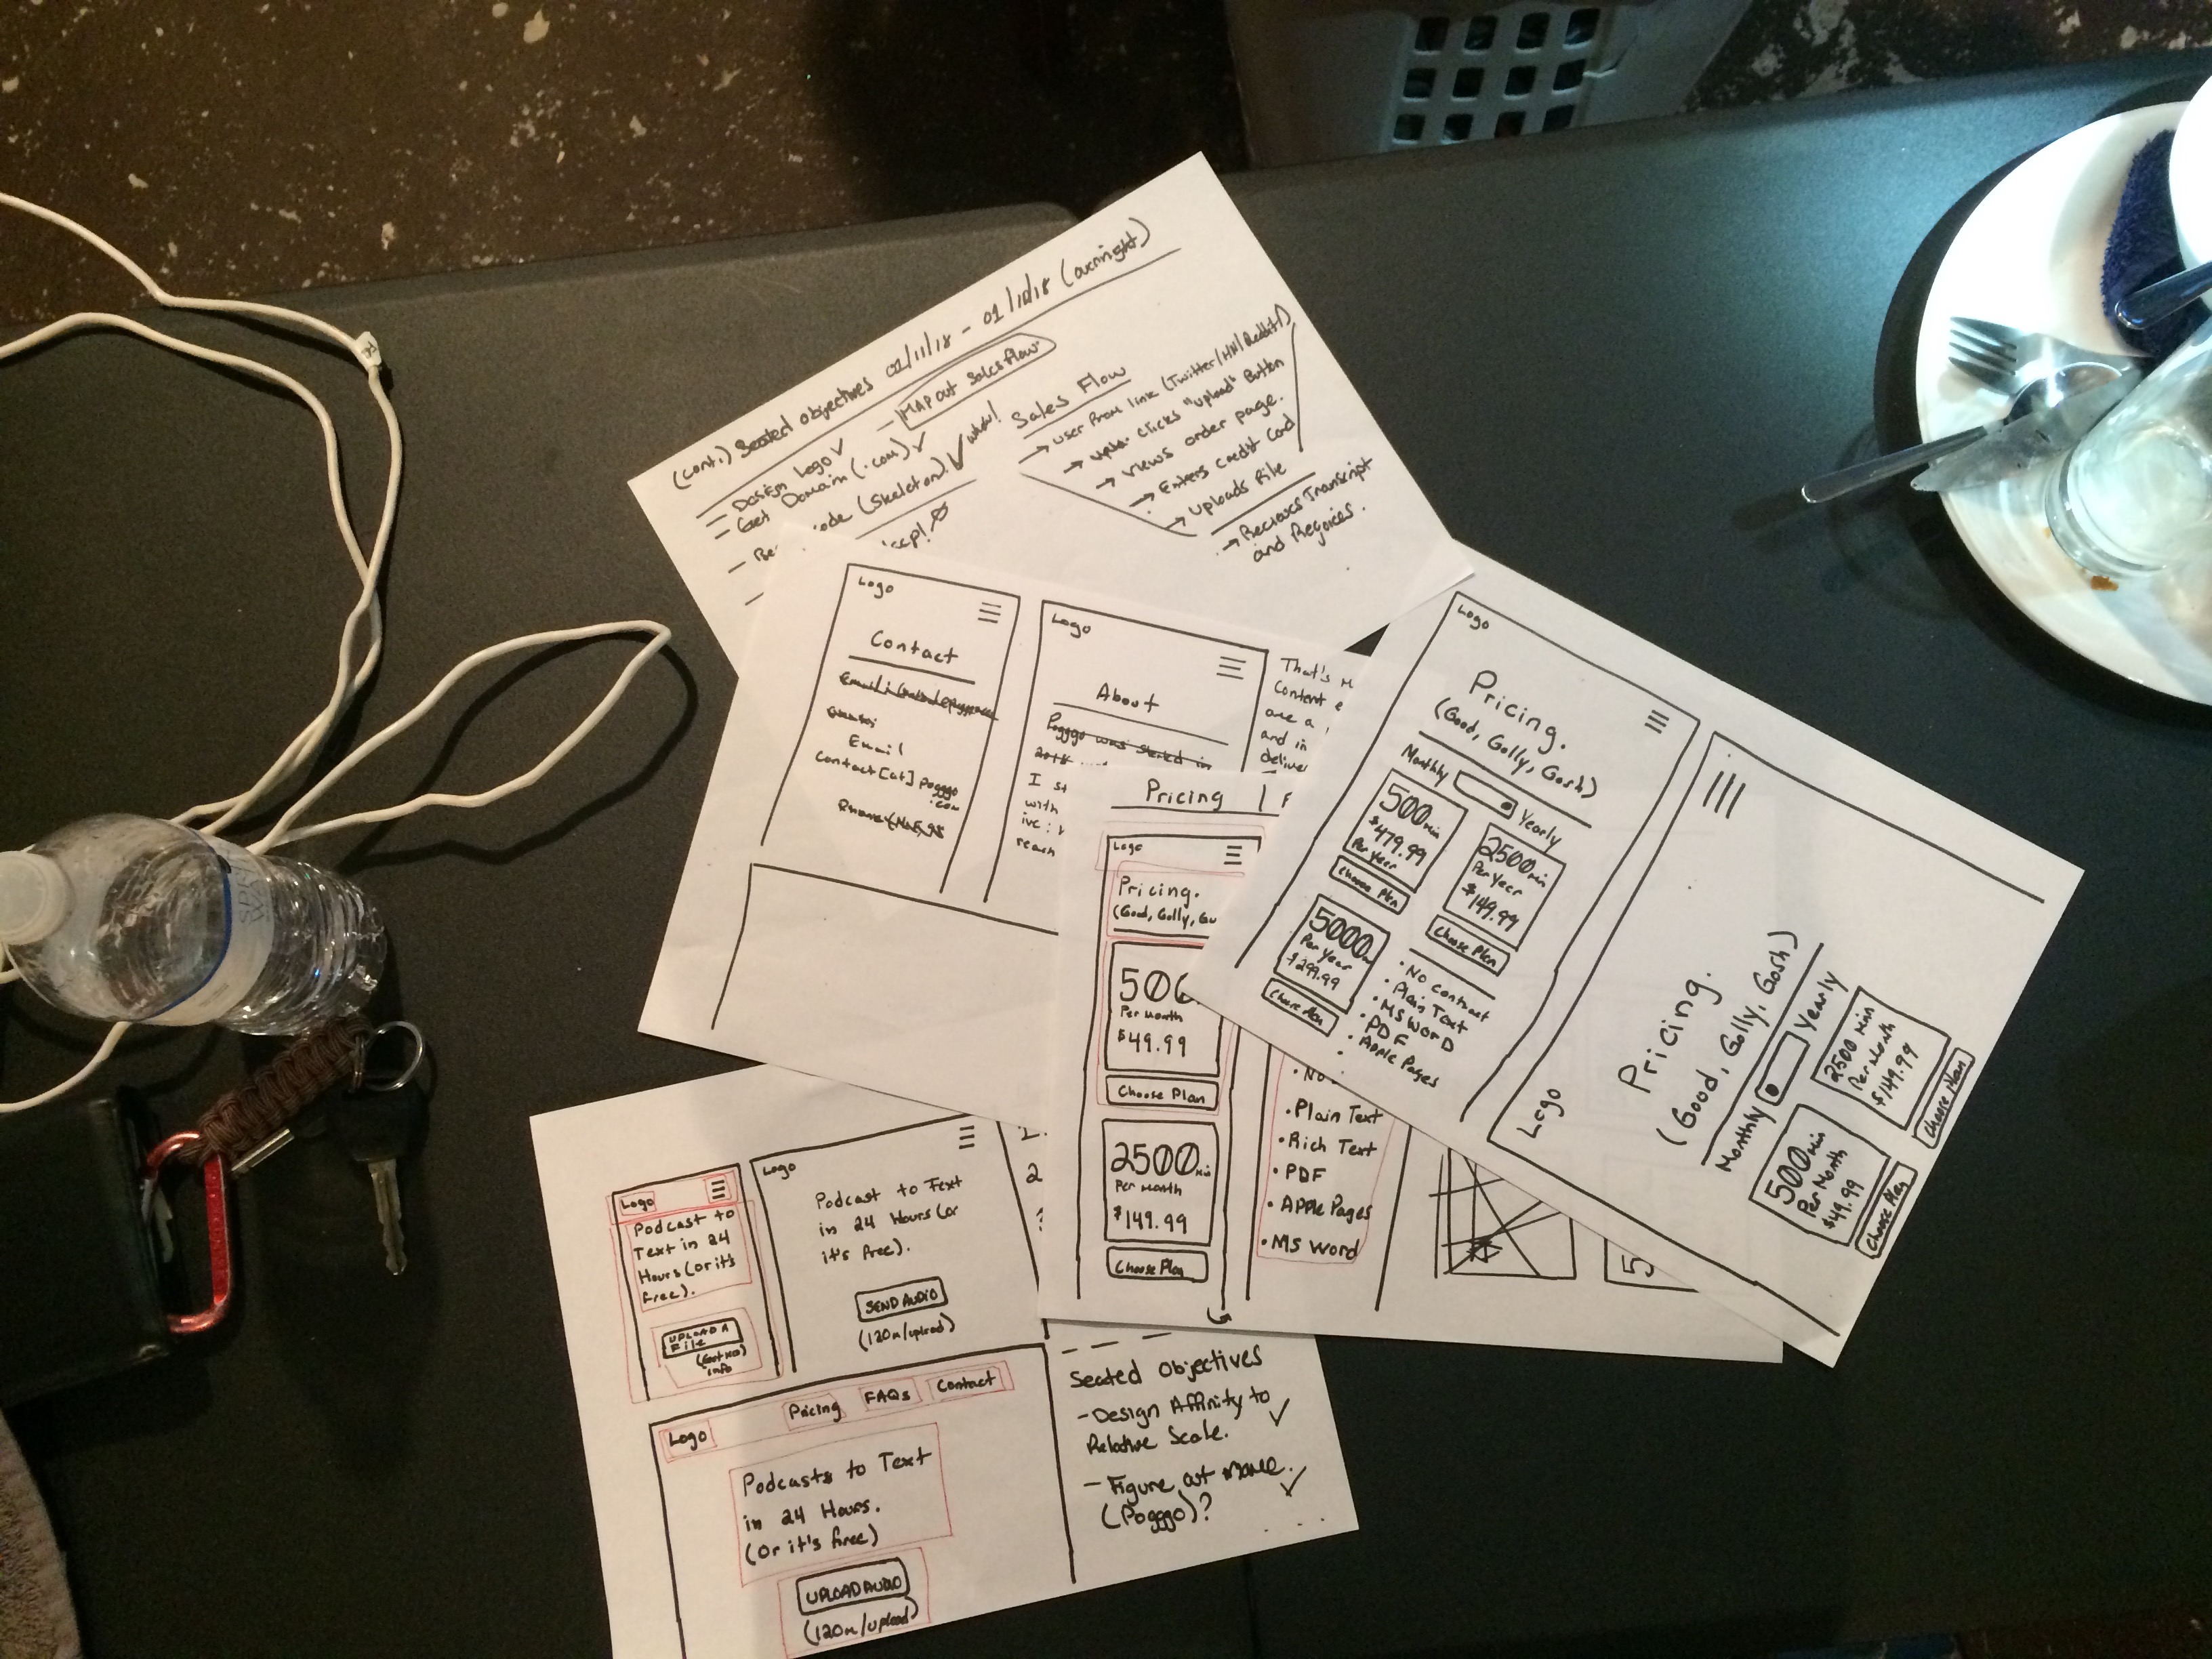 (cont.) Seated Objectives 01/11/18 - 01/12/18 (overnight)
- Design Logo ✓
- Get Domain (.com) ✓
ode (Skeleton). ✓ whew!
- MAP out Sales flow
Sales Flow
→ User from link (Twitter/HN/Reddit/)
→ clicks "upload" Button
→ Views order page.
→ Enters Credit Card
→ Uploads File
→ Recieves Transcript
and Rejoices.
Logo
Contact
Email
contact[at]pogggo
.com
Logo
About
Pogggo was started in
2018
I st
with
reach
That's
Content
are a
and in
deliver
Pricing
Logo
Pricing.
(Good, Golly, Go
500
Per Month
$49.99
Choose Plan
2500 min
Per Month
$149.99
Choose Plan
• No
• Plain Text
• Rich Text
• PDF
• Apple Pages
• MS Word
Logo
Pricing.
(Good, Golly, Gosh)
Monthly Yearly
500 min
$479.99
Per Year
Choose Plan
2500 min
Per Year
$149.99
Choose Plan
5000
Per Year
$299.99
Choose Plan
• No contract
• Plain Text
• MS WORD
• PDF
• Apple Pages
Logo
Pricing.
(Good, Golly, Gosh)
Monthly Yearly
500 min
Per Month
$49.99
Choose Plan
2500 min
Per Month
$149.99
Choose Plan
5
Logo
Podcast to
Text in 24
Hours (or it's
free).
UPLOAD A
File
info
Logo
Podcast to Text
in 24 Hours (or
it's free).
SEND AUDIO
(120m/upload)
1.
2
Logo
Pricing FAQs Contact
Podcasts to Text
in 24 Hours.
(Or it's free)
UPLOAD AUDIO
(120m/upload)
Seated Objectives
- Design Affinity to
Relative Scale. ✓
- Figure out name.
(Pogggo)? ✓